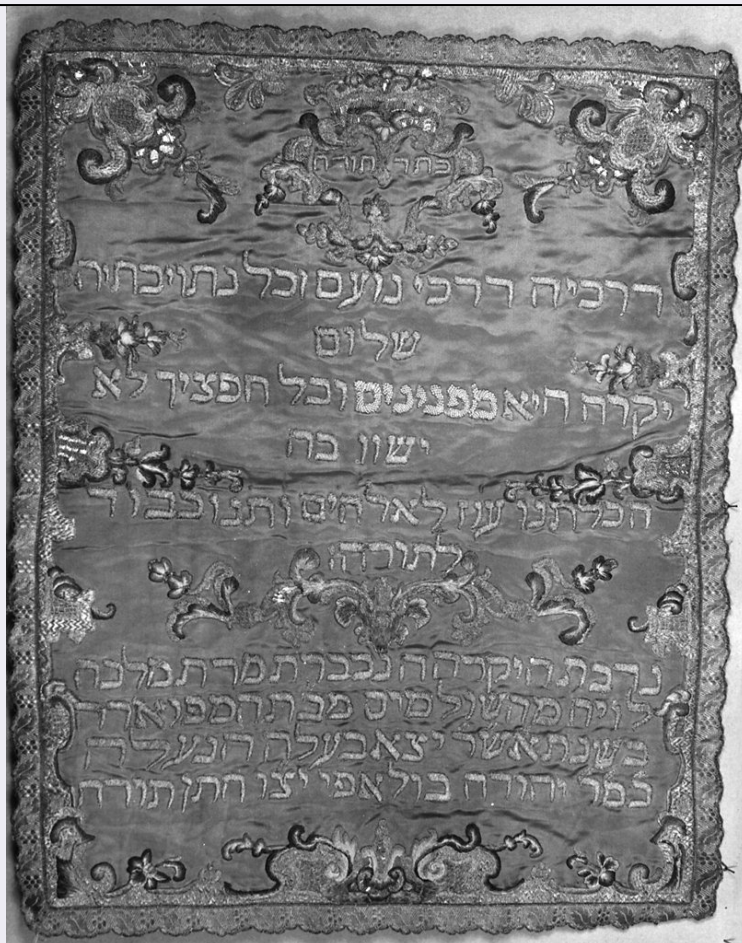 כתר תורה
דרכיה דרכי נועם וכל נתויבתיה
שלום
יקרה היא מפנינים וכל חפציך לא
ישוו בה
הכל תנו עוז לאלהים ותנו כבוד
לתורה:
נדבת היקרה הנכברת מרת מלכה
מבת המפואר
בשנת אשר יצא בעלה הנעלה
כמר יהודה בולאפי יצו חתן תורה